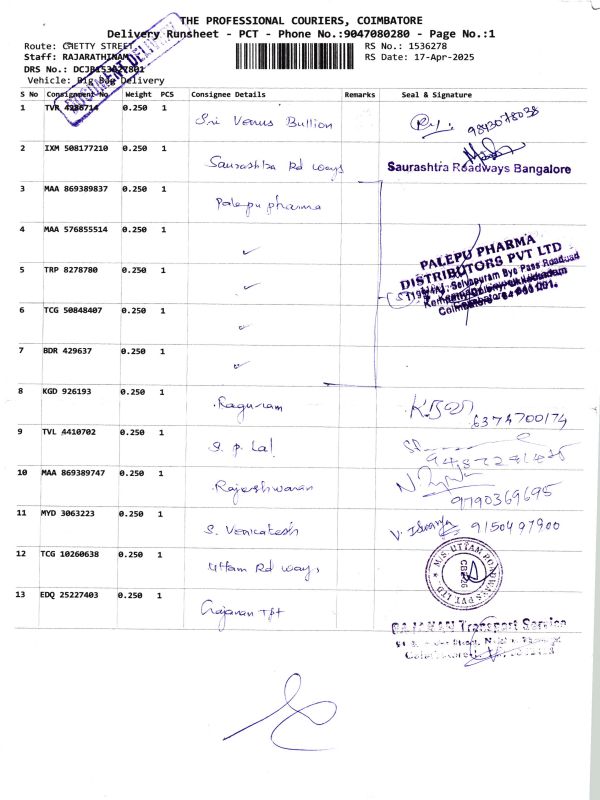 THE PROFESSIONAL COURIERS, COIMBATORE
Delivery Runsheet - PCT - Phone No.:9047080280 - Page No.:1
Route: CHETTY STREET
RS No.: 1536278
Staff: RAJARATHINAM
RS Date: 17-Apr-2025
DRS No.: DCJB153627801
Vehicle: Big Bag Delivery
S No Consignment No Weight PCS Consignee Details Remarks Seal & Signature
1 TVR 4286714 0.250 1 Sri Venus Bullion 9843078038
2 IXM 508177210 0.250 1 Saurashtra Rd ways
Saurashtra Roadways Bangalore
3 MAA 869389837 0.250 1 Palepu pharma
4 MAA 576855514 0.250 1 ✓
PALEPU PHARMA
DISTRIBUTORS PVT LTD
5 TRP 8278780 0.250 1 ✓
Selvapuram Bye Pass Road
Coimbatore
6 TCG 50848407 0.250 1 ✓
7 BDR 429637 0.250 1 ✓
8 KGD 926193 0.250 1 Raguram
6374700174
9 TVL 4410702 0.250 1 S. P. Lal
10 MAA 869389747 0.250 1 Rajeshwaran
9790369695
11 MYD 3063223 0.250 1 S. Venkatesh 9150497900
12 TCG 10260638 0.250 1 Uttam Rd ways
M/S. UTTAM ROADWAYS PVT LTD
13 EDQ 25227403 0.250 1 Gajanan Tpt
GAJANAN Transport Service